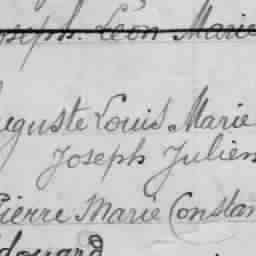 Joseph Léon Marie
Auguste Louis Marie
Joseph Julien
Pierre Marie Constan
Edouard